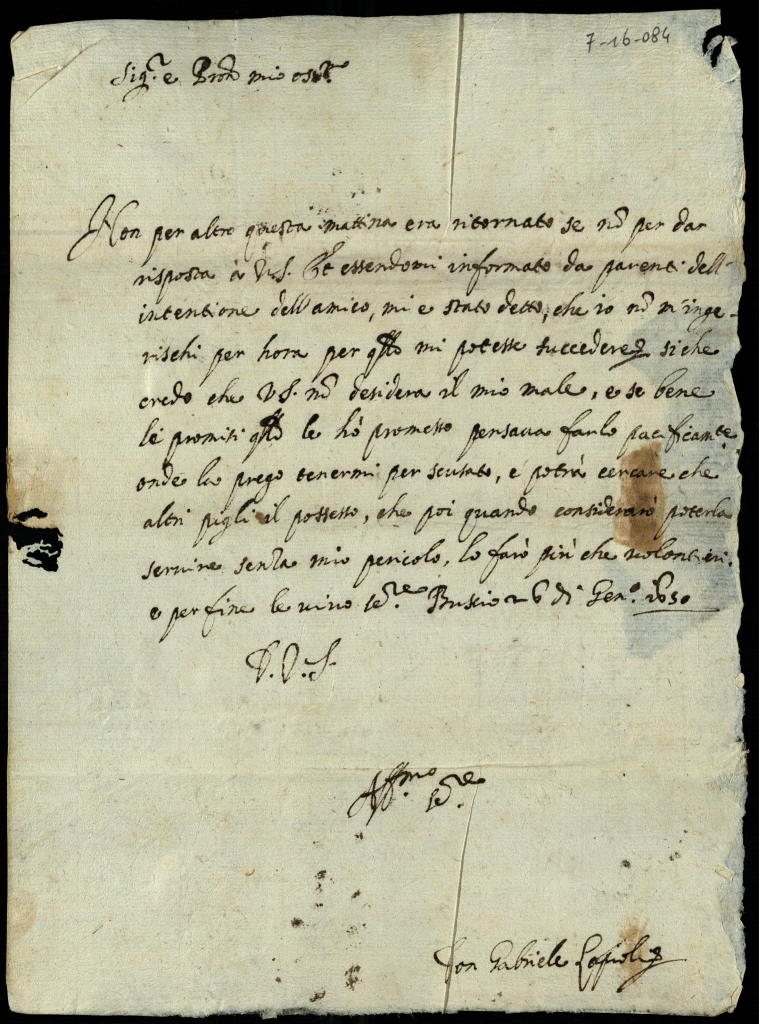 7-16-084
Sig.r e Pron mio oss.mo
Non per altro questa mattina era ritornato se nō per dar
risposta à V.S. Et essendomi informato da parenti dell'
intentione dell'amico, mi è stato detto, che io nō m'inge-
rischi per hora per qllo mi potesse succedere siche
credo che V.S. nō desidera il mio male, e se bene
li promisi qllo le hò promesso pensava farlo pacificamte.
onde la prego tenermi per scusato, e potrà cercare che
altri pigli il possesso, che poi quando considerarò poterla
servire senza mio pericolo, lo farò più che volontieri.
e per fine le vivo se.re 26 di Gen.o 1650
D. V. S.
Aff.mo se.re
Don Gabriele